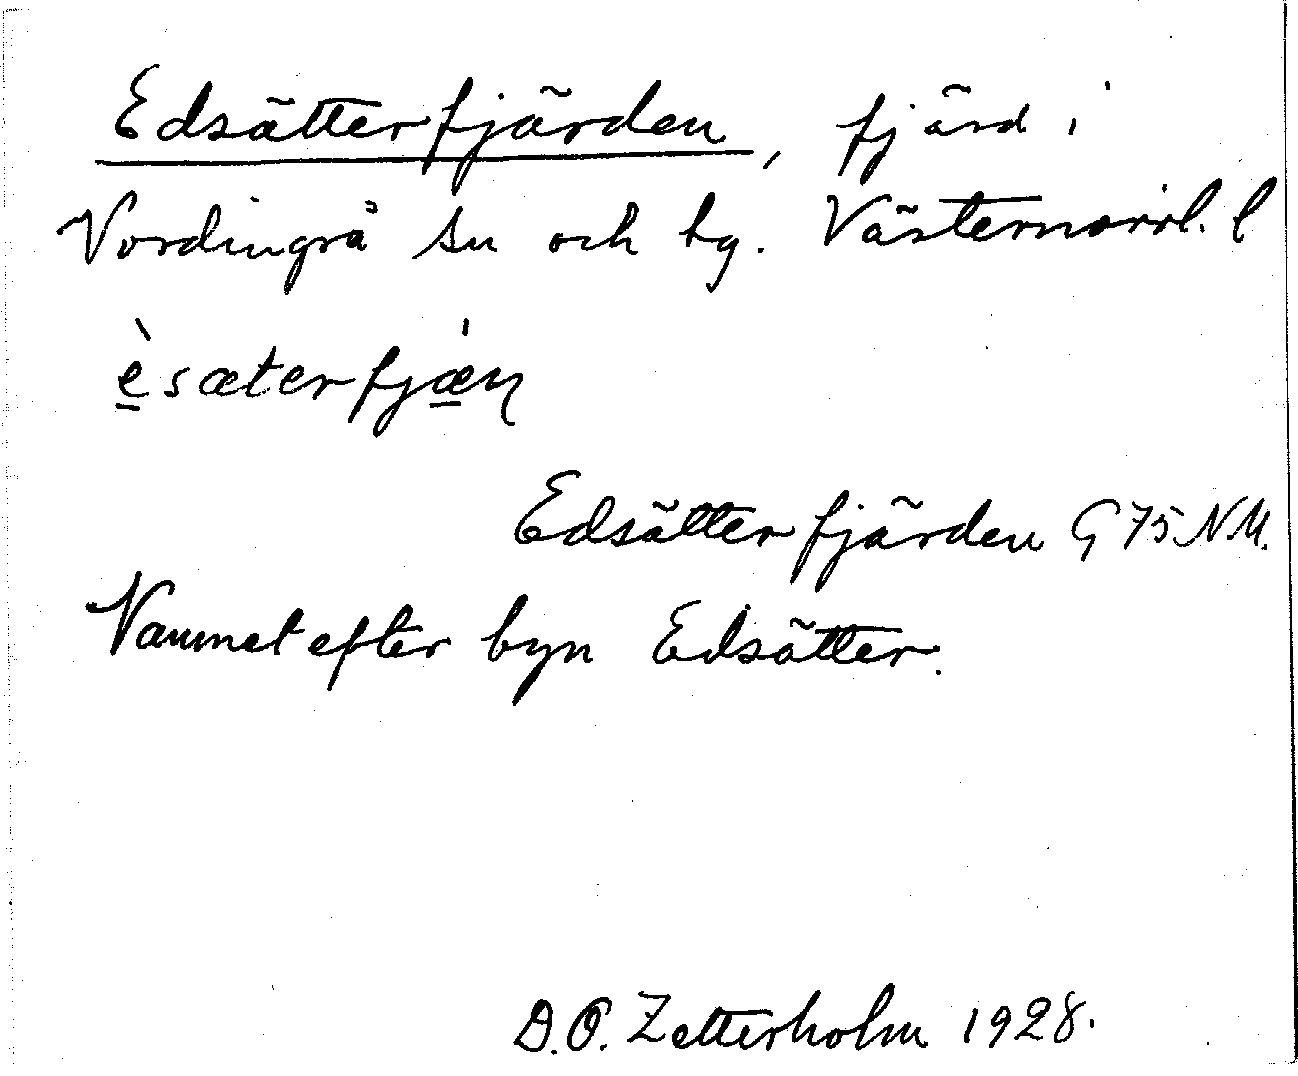 Edsätterfjärden, fjärd i
Nordingrå sn och tg. Västernorrl. l
è̱sæterfjæ̱̀ɳ
Edsätterfjärden G 75 N M.
Namnet efter byn Edsätter.
D. O. Zetterholm 1928.